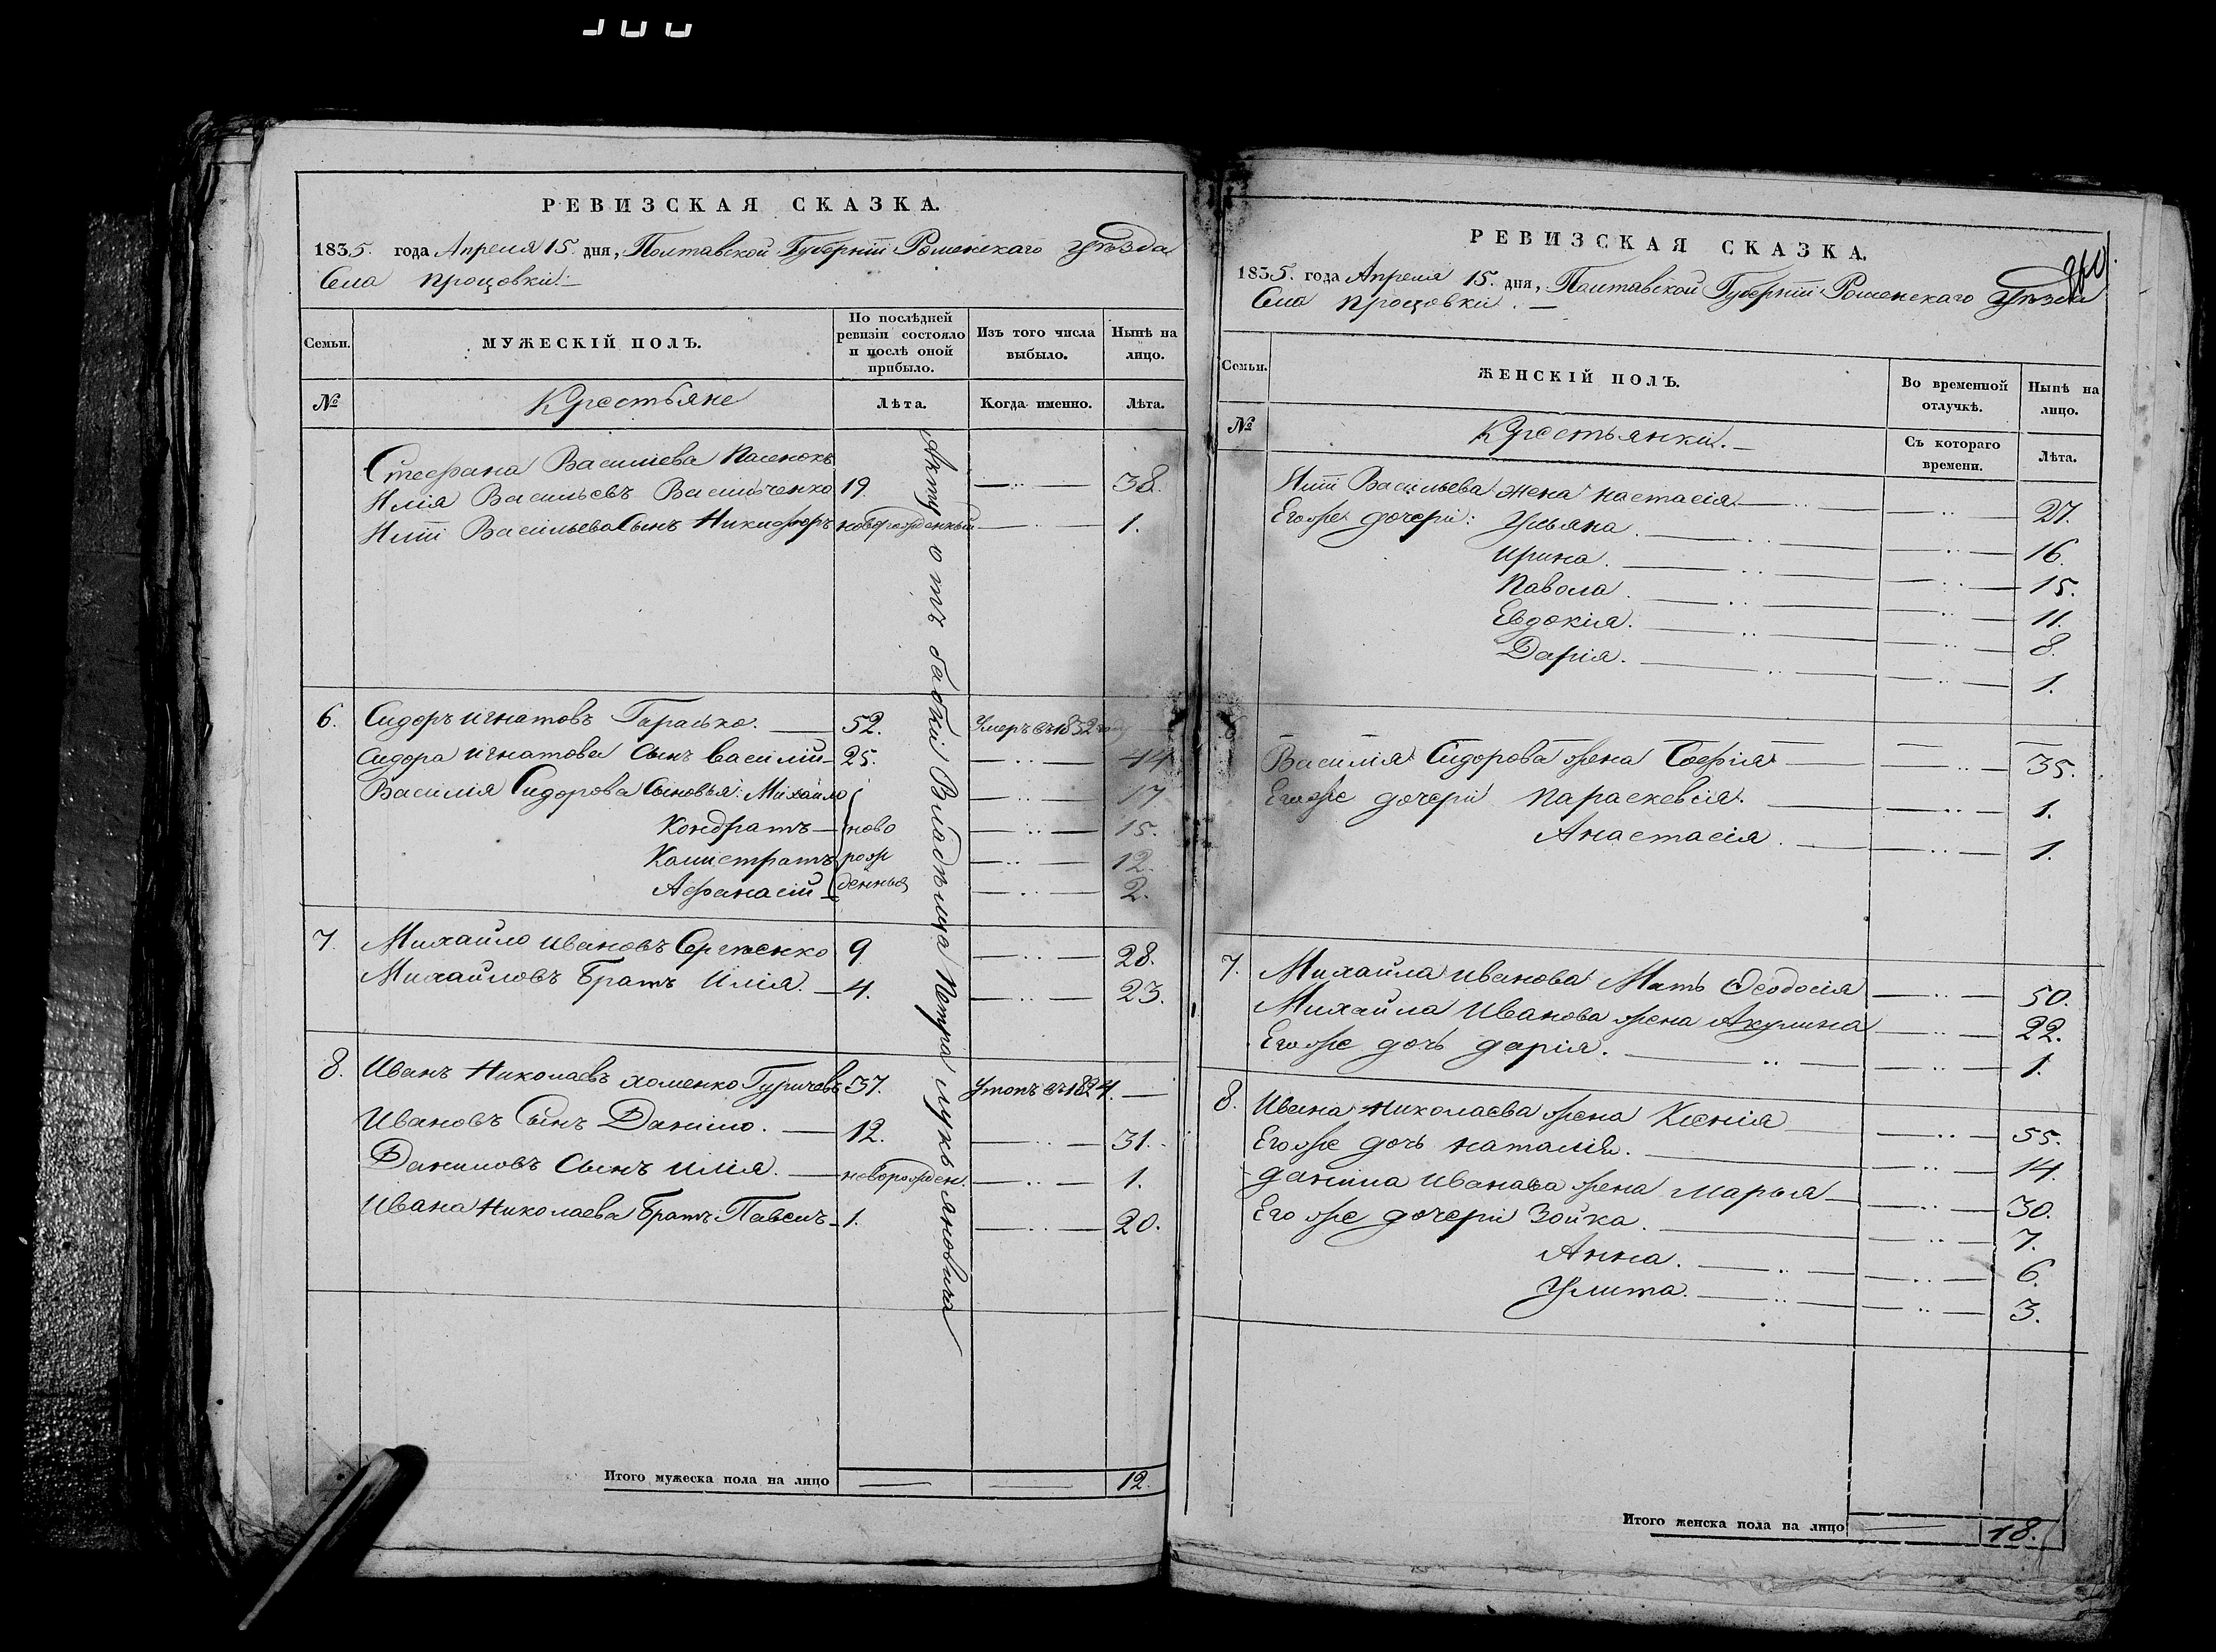 РЕВИЗСКАЯ СКАЗКА.
1835. года Апреля 15. дня, Полтавской Губерніи Роменскаго Уѣзда
Села Процовки. —
Семьи.
МУЖЕСКІЙ ПОЛЪ.
По послѣдней ревизіи состояло и послѣ оной прибыло.
Изъ того числа выбыло.
Нынѣ на лицо.
№
Крестьяне
Лѣта.
Когда именно.
Лѣта.
Стефана Василіева
Илія Васильевъ Васильченко 19. 38.
Иліи Васильева Сынъ Никифоръ новорожденный 1.
6. Сидоръ Игнатовъ Гарасько. 52. Умеръ въ 1832 году
Сидора Игнатова Сынъ Василій 25. 44
Василія Сидорова Сыновья: Михайло 17
Кондратъ ново 15.
Калистратъ рож 12.
Афанасій денныя 2.
7. Михайло Ивановъ Сергѣенко 9. 28.
Михайловъ братъ Илія. 4. 23.
8. Иванъ Николаевъ Хоменко Гуричевъ 37. Утопъ въ 1824.
Ивановъ Сынъ Данило. 12. 31.
Даниловъ Сынъ Илія. новорожден. 1.
Ивана Николаева братъ Павелъ 1. 20.
отъ бабки Владѣльца Петра Лукьяновича
Итого мужеска пола на лицо 12.
РЕВИЗСКАЯ СКАЗКА.
1835. года Апреля 15. дня, Полтавской Губерніи Роменскаго Уѣзда
Села Процовки. —
Семьи.
ЖЕНСКІЙ ПОЛЪ.
Во временной отлучкѣ.
Нынѣ на лицо.
№
Крестьянки. —
Съ котораго времени.
Лѣта.
Иліи Васильева жена Настасія 27.
Егоже дочери: Ульяна. 16.
Ирина. 15.
Павола. 11.
Евдокія. 8.
Дарія. 1.
6
Василія Сидорова жена Софія 35.
Егоже дочери Параскевія. 1.
Анастасія. 1.
7. Михайла Иванова Мать Феодосія 50.
Михайла Иванова жена Акулина 22.
Егоже дочь Дарія. 1.
8. Ивана Николаева жена Ксенія 55.
Егоже дочь Наталія. 14.
Данила Иванова жена Марья 30.
Его же дочери Зойка. 7.
Анна. 6.
Улита. 3.
Итого женска пола на лицо 18.